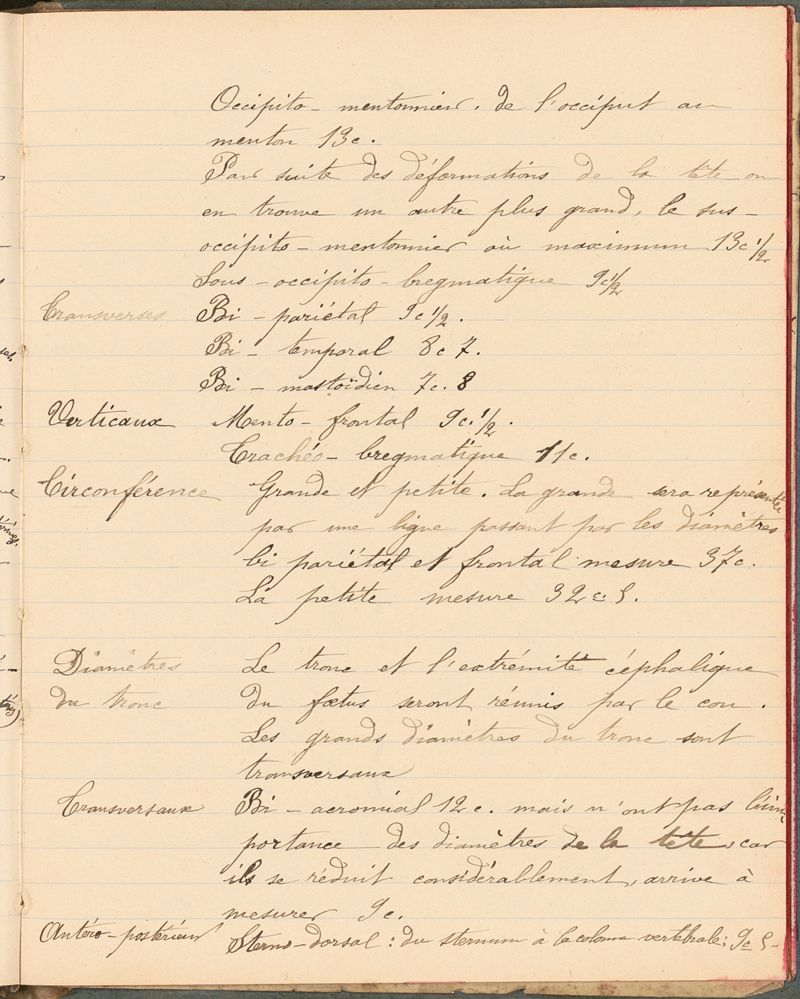 Occipito - mentonnier. de l'occiput au
menton 13c.
Par suite des déformations de la tête on
en trouve un autre plus grand, le sus-
occipito - mentonnier où maximum 13c 1/2
Sous - occipito - bregmatique 9c 1/2
Transverses Bi - pariétal 9c 1/2.
Bi - temporal 8c 7.
Bi - mastoïdien 7c. 8
Verticaux Mento - frontal 9c. 1/2.
Trachéo - bregmatique 11c.
Circonférence Grande et petite. La grande sera représentée
par une ligne passant par les diamètres
bi pariétal et frontal mesure 37c.
La petite mesure 32c 5.
Diamètres Le tronc et l'extrémité céphalique
du tronc du fœtus seront réunis par le cou.
Les grands diamètres du tronc sont
transversaux
Transversaux Bi - acromial 12c. mais n'ont pas l'im-
portance des diamètres de la tête, car
ils se réduit considérablement, arrive à
mesurer 9c.
Antéro - postérieur Sterno - dorsal : du sternum à la colonne vertébrale : 9c 5 -